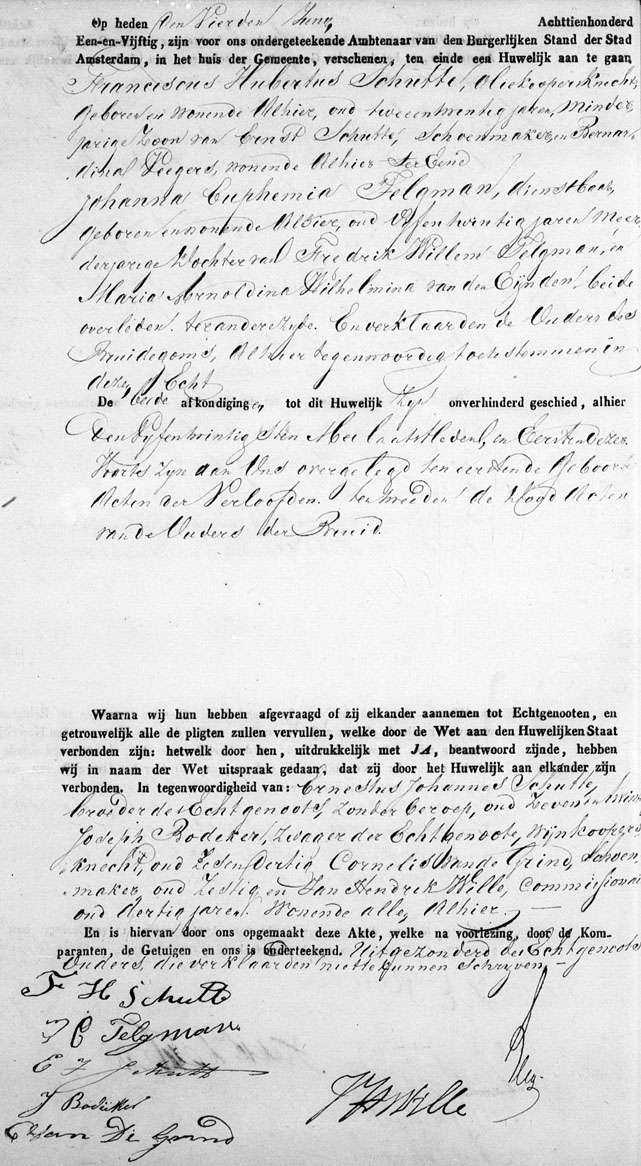 Op heden den Vierden Juny Achttienhonderd
Een-en-Vijftig, zijn voor ons ondergeteekende Ambtenaar van den Burgerlijken Stand der Stad
Amsterdam, in het huis der Gemeente, verschenen, ten einde een Huwelijk aan te gaan,
Franciscus Hubertus Schutte, Oliekoopersknecht,
geboren en wonende Alhier, oud tweeentwintig jaren, minder
jarige Zoon van Ernst Schutte, Schoenmaker, en Bernar
dina Veegers, wonende Alhier ter Eene
Johanna Euphemia Telgman, dienstbaar,
geboren en wonende Alhier, oud Vyfentwintig jaren meer
derjarige Dochter van Fredrik Willem Telgman, en
Maria Arnoldina Wilhelmina van den Eijnden, beide
overleden. ter andere zyde. En verklaarden de Ouders des
Bruidegoms, Alhier tegenwoordig toetestemmen in
deze Echt
De beide afkondigingen tot dit Huwelijk Zyn onverhinderd geschied, alhier
den Vyfentwintigsten Mei laatstleden, en Eersten dezer
Voorts Zyn aan Ons overgelegd ten eersten de Geboorte
Acten der Verloofden. ten tweeden de Dood Acten
van de Ouders der Bruid.
Waarna wij hun hebben afgevraagd of zij elkander aannemen tot Echtgenooten, en
getrouwelijk alle de pligten zullen vervullen, welke door de Wet aan den Huwelijken Staat
verbonden zijn: hetwelk door hen, uitdrukkelijk met JA, beantwoord zijnde, hebben
wij in naam der Wet uitspraak gedaan, dat zij door het Huwelijk aan elkander zijn
verbonden. In tegenwoordigheid van: Ernestus Johannes Schutte,
broeder des Echtgenoots, Zonder beroep, oud Zevenentwintig
Joseph Bodeker, Zwager der Echtgenoote, Wijnkoopers
knecht, oud Zesendertig Cornelis van de Grind, Schoen
maker oud Zestig en Jan Hendrik Wille, Commissionair
oud dertig jaren. Wonende alle, Alhier.
En is hiervan door ons opgemaakt deze Akte, welke na voorlezing, door de Kom-
paranten, de Getuigen en ons is onderteekend. Uitgezonderd des Echtgenoots
Ouders, die verklaarden niet te kunnen Schryven
F H Schutte
J E Telgman
E J Schutte
J Bodeker
C van De Grind
J H Wille